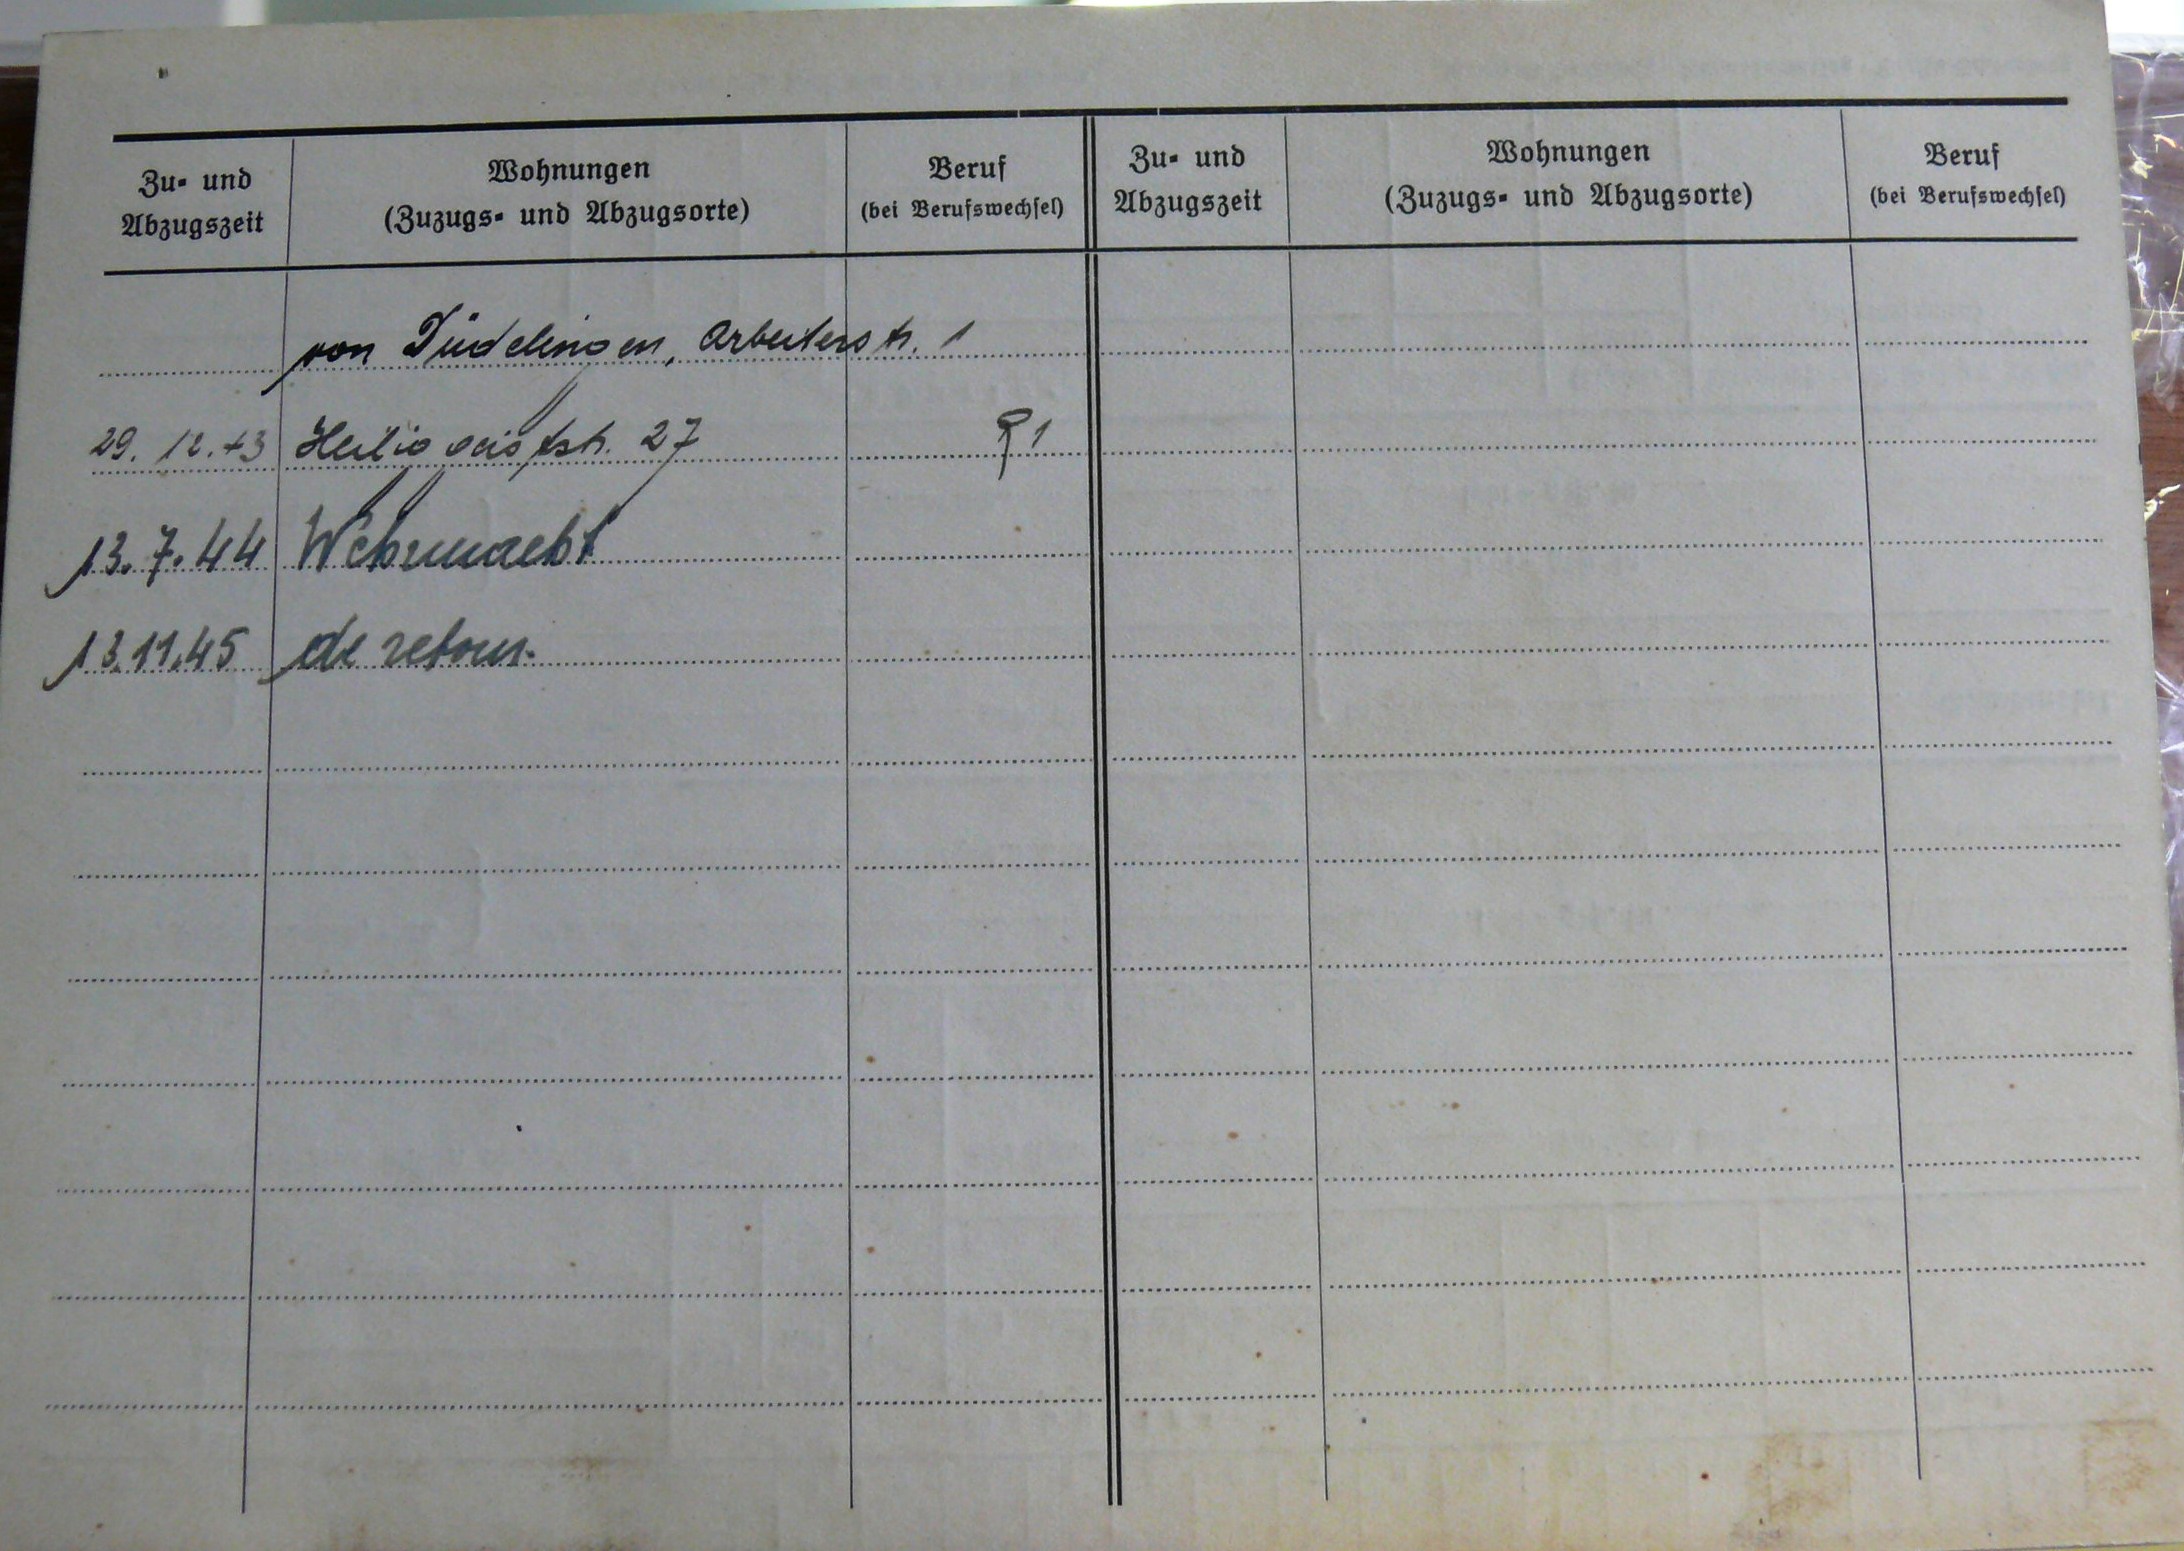 Zu- und Abzugszeit
Wohnungen (Zuzugs- und Abzugsorte)
Beruf (bei Berufswechsel)
Zu- und Abzugszeit
Wohnungen (Zuzugs- und Abzugsorte)
Beruf (bei Berufswechsel)
von Düdelingen, Arbeiterstr. 1
29. 12. 43 Heiliggeistsstr. 27
13. 7. 44 Wehrmacht
13.11.45 de retour.